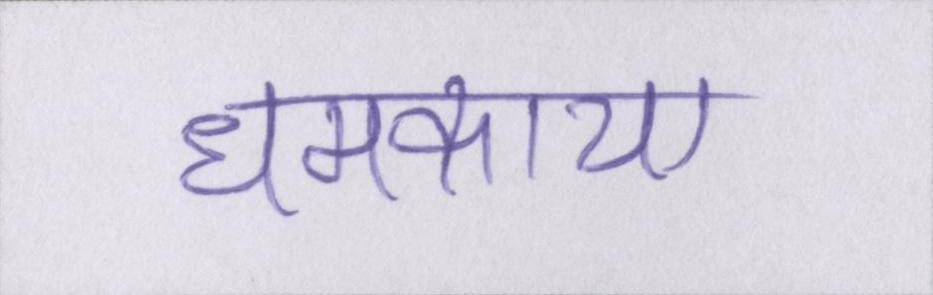 धमकाया